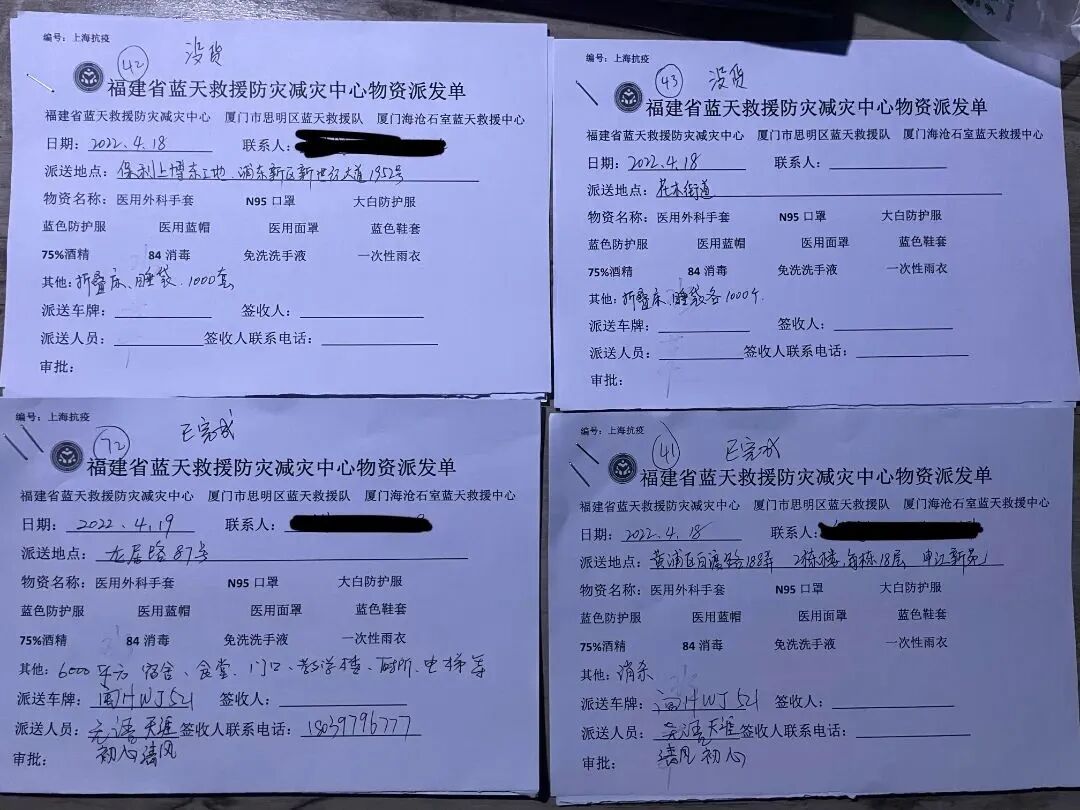 编号：上海抗疫
42 没货
福建省蓝天救援防灾减灾中心物资派发单
福建省蓝天救援防灾减灾中心 厦门市思明区蓝天救援队 厦门海沧石室蓝天救援中心
日期：2022.4.18 联系人：
派送地点：保利上博东工地、浦东新区新世纪大道1952号
物资名称：医用外科手套 N95 口罩 大白防护服
蓝色防护服 医用蓝帽 医用面罩 蓝色鞋套
75%酒精 84 消毒 免洗洗手液 一次性雨衣
其他：折叠床、睡袋、1000套
派送车牌： 签收人：
派送人员： 签收人联系电话：
审批：
编号：上海抗疫
43 没货
福建省蓝天救援防灾减灾中心物资派发单
福建省蓝天救援防灾减灾中心 厦门市思明区蓝天救援队 厦门海沧石室蓝天救援中心
日期：2022.4.18 联系人：
派送地点：花木街道
物资名称：医用外科手套 N95 口罩 大白防护服
蓝色防护服 医用蓝帽 医用面罩 蓝色鞋套
75%酒精 84 消毒 免洗洗手液 一次性雨衣
其他：折叠床、睡袋各1000个.
派送车牌： 签收人：
派送人员： 签收人联系电话：
审批：
编号：上海抗疫
72 已完成
福建省蓝天救援防灾减灾中心物资派发单
福建省蓝天救援防灾减灾中心 厦门市思明区蓝天救援队 厦门海沧石室蓝天救援中心
日期：2022.4.19 联系人：
派送地点：龙居路87号
物资名称：医用外科手套 N95 口罩 大白防护服
蓝色防护服 医用蓝帽 医用面罩 蓝色鞋套
75%酒精 84 消毒 免洗洗手液 一次性雨衣
其他：6000平方 宿舍、食堂、门口、教学楼、厕所、电梯等
派送车牌：闽HWJ521 签收人：
派送人员：天涯 签收人联系电话：18039796777
审批：初心 清风
编号：上海抗疫
41 已完成
福建省蓝天救援防灾减灾中心物资派发单
福建省蓝天救援防灾减灾中心 厦门市思明区蓝天救援队 厦门海沧石室蓝天救援中心
日期：2022.4.18 联系人：
派送地点：黄浦区白渡路188弄 2栋楼，每栋18层 申江新苑
物资名称：医用外科手套 N95 口罩 大白防护服
蓝色防护服 医用蓝帽 医用面罩 蓝色鞋套
75%酒精 84 消毒 免洗洗手液 一次性雨衣
其他：消杀
派送车牌：闽HWJ521 签收人：
派送人员：天涯 签收人联系电话：
审批：清风 初心